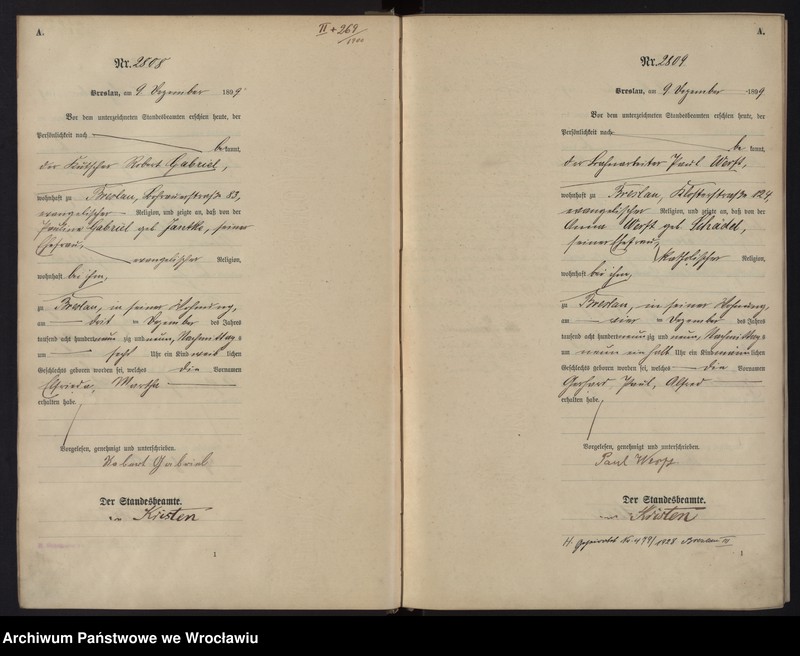 A.
II + 269
Nr. 2808
Breslau, am 9 Dezember 1899
Vor dem unterzeichneten Standesbeamten erschien heute, der
Persönlichkeit nach
be kannt,
der Kutscher Robert Gabriel,
wohnhaft zu Breslau, 83,
evangelischer Religion, und zeigte an, daß von der
Gabriel geb. seiner
Ehefrau,
evangelischer Religion,
wohnhaft bei ihm,
zu Breslau, in seiner Wohnung,
am Dezember des Jahres
tausend acht hundert neun zig und neun, Nachmittag s
um Uhr ein Kind weib lichen
Geschlechts geboren worden sei, welches die Vornamen
Martha
erhalten habe.
Vorgelesen, genehmigt und unterschrieben.
Robert Gabriel
Der Standesbeamte.
Kiesten
1
A.
Nr. 2809
Breslau, am 9 Dezember 1899
Vor dem unterzeichneten Standesbeamten erschien heute, der
Persönlichkeit nach
be kannt,
der Bahnarbeiter Paul Werft,
wohnhaft zu Breslau, Klosterstraße 124,
evangelischer Religion, und zeigte an, daß von der
Anna Werft geb. Schädel,
seiner Ehefrau,
katholischer Religion,
wohnhaft bei ihm,
zu Breslau, in seiner Wohnung,
am vier Dezember des Jahres
tausend acht hundert neun zig und neun, Nachmittag s
um neun ein halb Uhr ein Kind männ lichen
Geschlechts geboren worden sei, welches die Vornamen
Gerhard, Paul, Alfred
erhalten habe.
Vorgelesen, genehmigt und unterschrieben.
Paul Werft
Der Standesbeamte.
Kiesten
H. No 479/1928 Breslau II
1
Archiwum Państwowe we Wrocławiu